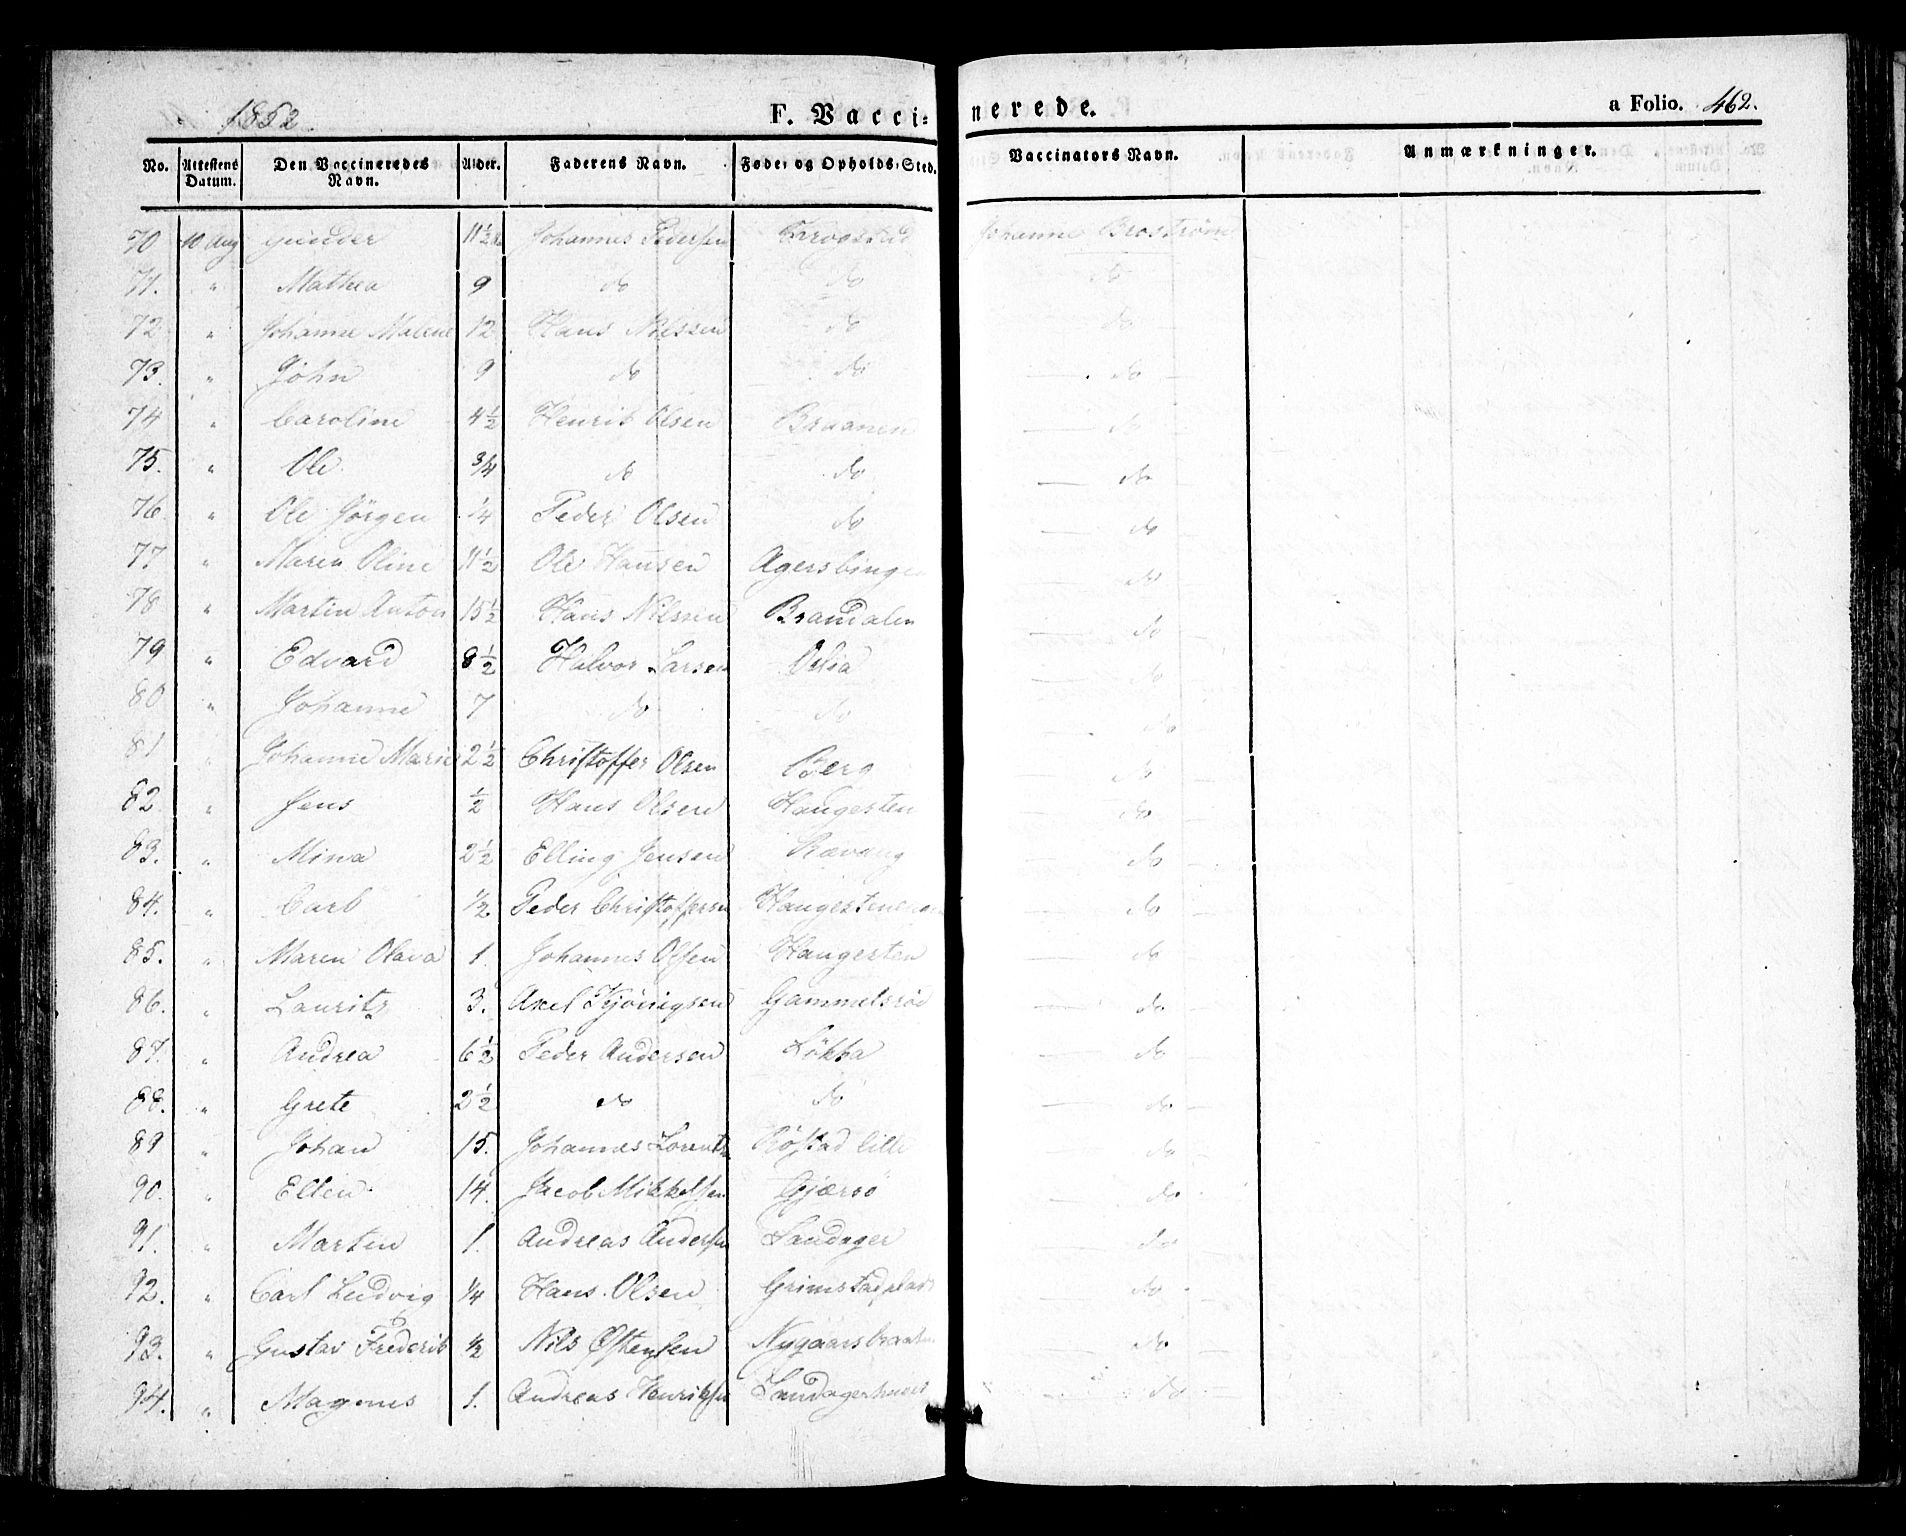 1852. F. Vaccinerede. a Folio. 462.
No. Attestens Datum. Den Vaccineredes Navn. Alder. Faderens Navn. Føde- og Opholds-Sted. Vaccinators Navn. Anmærkninger.
70 10 Aug Gunder 11½ Johannes Pedersen Krogstad Johanne Broström
71. " Mathea 9 do do do
72 " Johanne Malene 12 Hans Nilssen do do
73. " John 9 do do do
74 " Caroline 4½ Henrik Olsen Braanen do
75. " Ole 3/4 do do do
76 " Ole Jørgen 1/4 Peder Olsen do do
77 " Maren Oline 11½ Ole Hansen Agersbingen do
78 " Martin Anton 15½ Hans Nilssen Brandalen do
79 " Edvard 8½ Halvor Larsen do
80 " Johanne 7 do do do
81 " Johanne Marie 2½ Christoffer Olsen Berg do
82 " Jens ½ Hans Olsen Haugesten do
83. " Mina 2½ Elling Jensen Ravaug do
84. " Carl ½. Peder Christoffersen do
85. " Maren Olava 1. Johannes Olsen Haugesten do
86. " Lauritz 3. Axel Gammelsrød do
87. " Andrea 6½ Peder Andersen Løkka do
88. " Grete 2½ do do do
89 " Johan 15. Johannes Lorentz Røstad lille do
90. " Ellen 14. Jacob Mikkelsen Gjærsø do
91. " Martin 1. Andreas Andersen Sandager do
92. " Carl Ludvig 1/4 Hans Olsen Grimstadplads do
93. " Gustav Frederik ½ Nils Østensen Nygaarsbraaten do
94. " Magnus 1. Andreas Henriksen Sandagerhuus do